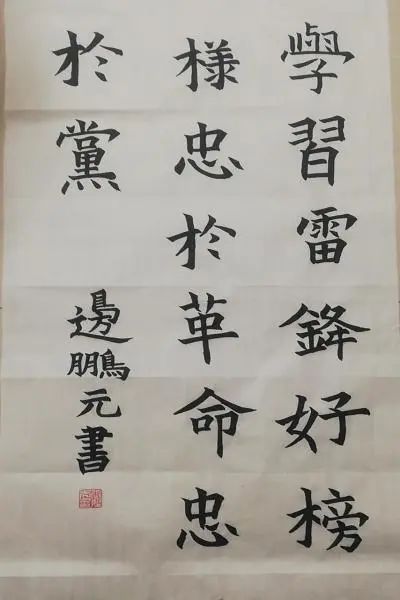 學習雷鋒好榜
樣忠於革命忠
於黨
邊鵬元書